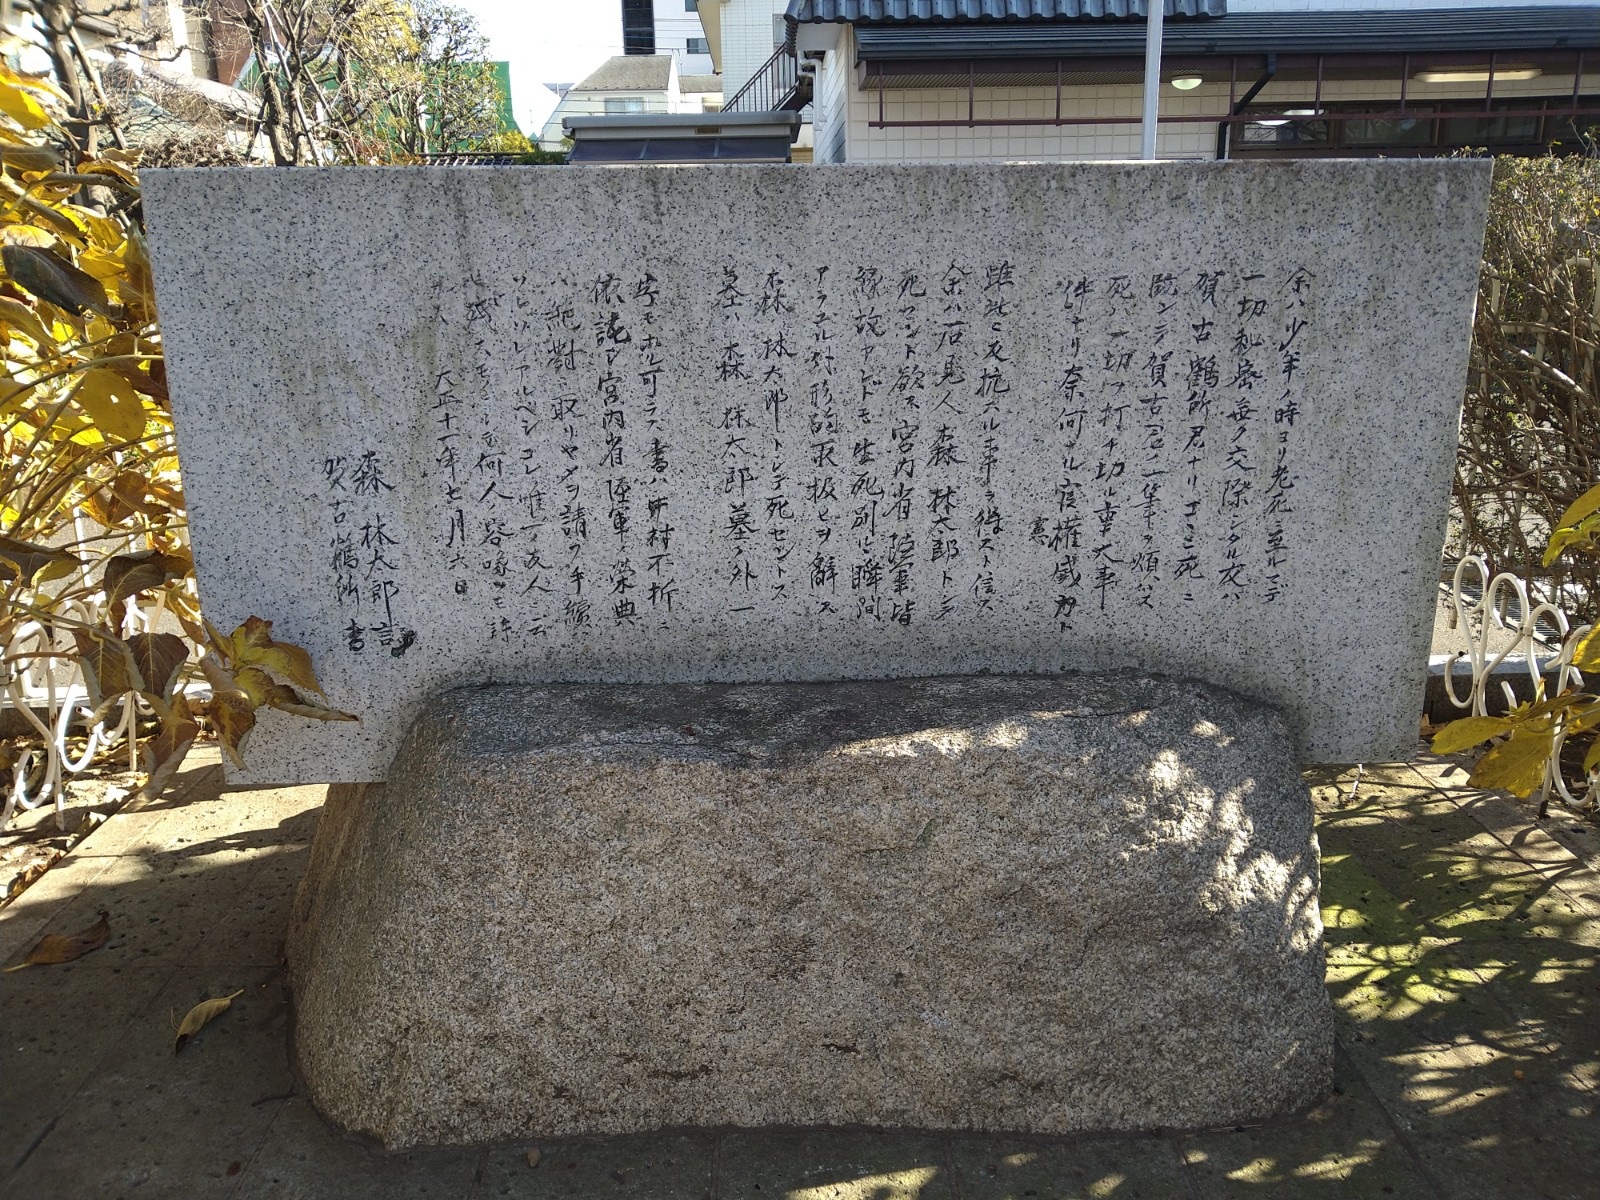 余ハ少年ノ時ヨリ老死ニ至ルマデ
一切秘密無ク交際シタル友ハ
賀古鶴所君ナリコヽニ死ニ
臨ンデ賀古君ノ一筆ヲ煩ハス
死ハ一切ヲ打チ切ル重大事
件ナリ奈何ナル官憲權威力ト
雖此ニ反抗スル事ヲ得スト信ス
余ハ石見人森林太郎トシテ
死セント欲ス宮内省陸軍皆
縁故アレドモ生死別ルヽ瞬間
アラユル外形的取扱ヒヲ辭ス
森林太郎トシテ死セントス
墓ハ森林太郎墓ノ外一
字モホル可ラス書ハ中村不折ニ
依託シ宮内省陸軍ノ榮典
ハ絶對ニ取リヤメヲ請フ手續ハ
ソレゾレアルベシコレ唯一ノ友人ニ云
ヒ殘スモノニシテ何人ノ容喙ヲモ許
サス
大正十一年七月六日
森林太郎言
賀古鶴所書